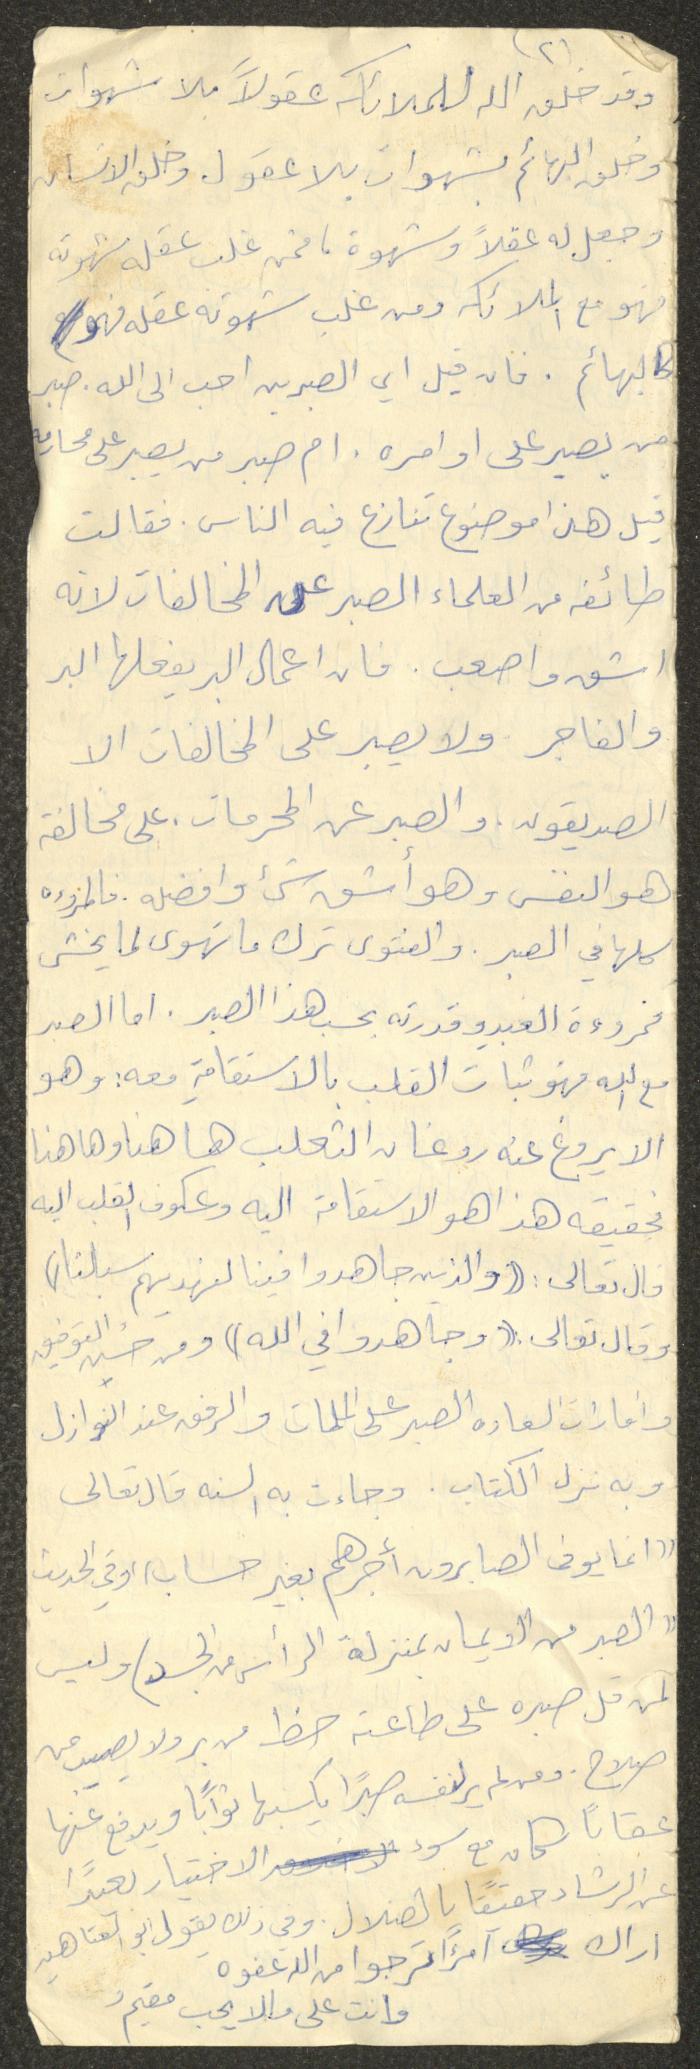 (٢)
وقد خلق الله للملائكه عقولاً بلا شهوات
وخلق البهائم بشهوات بلا عقول. وخلق الانسان
وجعل له عقلاً وشهوة، فمن غلب عقله شهوته
فهو مع الملائكه ومن غلب شهوته عقله فهو
كالبهائم. فان قيل اي الصبرين احب الى الله. صبر
من يصبر على اوامره. ام صبر من يصبر على محارمه
قيل هذا موضوع تنازع فيه الناس. فقالت
طائفه من العلماء الصبر على المخالفات لانه
اشق واصعب. فان اعمال البر يفعلها البر
والفاجر. ولا يصبر على المخالفات الا
الصديقون. والصبر عن المحرمات. على مخالفة
هو النفس وهو أشق شئ وافضله. فالمروءه
كلها في الصبر. والفتوى ترك ما تهوى لما يخشى
فمروءة العبد وقدرته بحسب هذا الصبر. اما الصبر
مع الله فهو ثبات القلب بالاستقامة معه: وهو
الا يروغ عنه روغان الثعلب ها هنا وها هنا
فحقيقه هذا هو الاستقامة اليه وعكوف القلب اليه
قال تعالى: ((والذين جاهدوا فينا لنهدينهم سبلنا))
وقال تعالى: ((وجاهدوا في الله)) ومن حسن التوفيق
وامارات السعاده الصبر على الملمات والرفق عند النوازل
وبه نزل الكتاب. وجاءت به السنه قال تعالى
((انما يوفى الصابرون أجرهم بغير حساب)) وفي الحديث
((الصبر من الايمان بمنزلة الرأس من الجسد)) وليس
لمن قل صبره على طاعته حظا من بر ولا نصيب من
صلاح. ومن لم ير لنفسه صبرًا يكسبها ثوابًا ويدفع عنها
عقابًا كان مع سوء الاختيار بعيدًا
عن الرشاد حقيقًا بالضلال. وفي ذلك يقول ابو العتاهيه
اراك امرًا ترجوا من الله عفوه
وانت على ما لا يحب مقيم